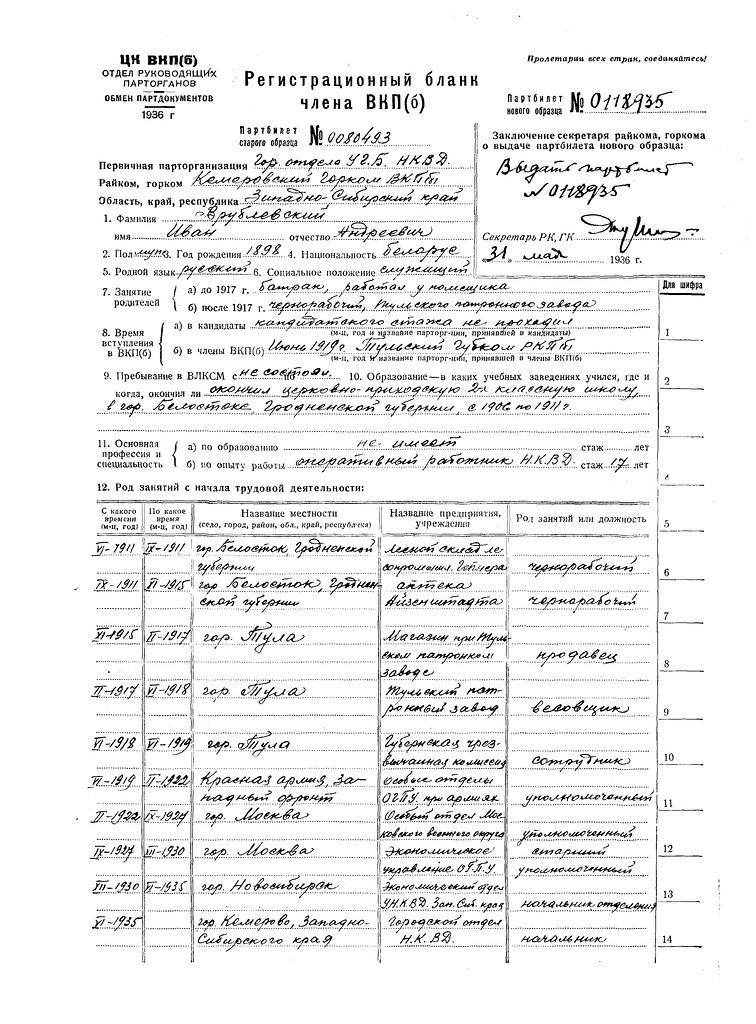 ЦК ВКП(б)
ОТДЕЛ РУКОВОДЯЩИХ
ПАРТОРГАНОВ
ОБМЕН ПАРТДОКУМЕНТОВ
1936 г
Пролетарии всех стран, соединяйтесь!
Регистрационный бланк
члена ВКП(б)
Партбилет
старого образца № 0080493
Партбилет
нового образца № 0118935
Заключение секретаря райкома, горкома
о выдаче партбилета нового образца:
Выдать партбилет
№ 0118935
Секретарь РК, ГК
31 мая 1936 г.
Первичная парторганизация Гор. отдела УГБ НКВД.
Райком, горком Кемеровский Горком ВКПб
Область, край, республика Западно-Сибирский край
1. Фамилия Врублевский
имя Иван отчество Андреевич
2. Пол муж. Год рождения 1898 4. Национальность беларус
5. Родной язык русский 6. Социальное положение служащий
7. Занятие родителей
а) до 1917 г. батрак, работал у помещика
б) после 1917 г. чернорабочий, Тульского патронного завода
8. Время вступления в ВКП(б)
а) в кандидаты кандидатского стажа не проходил
(м-ц, год и название парторг-ции, принявшей в кандидаты)
б) в члены ВКП(б) Июнь 1919 г. Тульским Губком РКПб
(м-ц, год и название парторг-ции, принявшей в члены ВКП(б)
9. Пребывание в ВЛКСМ с не состоял. 10. Образование—в каких учебных заведениях учился, где и
когда, окончил ли окончил церковно-приходскую 2х классную школу
в гор. Белостоке Гродненской губернии с 1906 по 1911 г.
11. Основная профессия и специальность
а) по образованию не имеет стаж лет
б) по опыту работы оперативный работник НКВД стаж 17 лет
12. Род занятий с начала трудовой деятельности:
С какого времени (м-ц, год) По какое время (м-ц, год) Название местности (село, город, район, обл., край, республика) Название предприятия, учреждения Род занятий или должность
VI-1911 IX-1911 гор. Белосток Гродненской
губернии Лесной склад ле-
сопромышл. чернорабочий
IX-1911 XI-1915 гор Белосток, Гроднен-
ской губернии аптека
Айзенштадта чернорабочий
XI-1915 II-1917 гор. Тула Магазин при Туль-
ском патронном
заводе продавец
II-1917 VI-1918 гор. Тула Тульский пат-
ронный завод весовщик
VI-1918 VI-1919 гор. Тула Губернская чрез-
вычайная комиссия сотрудник
VI-1919 II-1922 Красная армия, За-
падный фронт Особые отделы
ОГПУ при армиях уполномоченный
II-1922 IX-1927 гор. Москва Особый отдел Мос-
ковского военного округа уполномоченный
IX-1927 XII-1930 гор. Москва Экономическое
управление ОГПУ. старший
уполномоченный
XII-1930 VI-1935 гор. Новосибирск Экономический отдел
УНКВД. Зап. Сиб. края начальник отделения
VI-1935 гор. Кемерово, Западно-
Сибирского края Городской отдел
Н.К.ВД. начальник
Для шифра
1
2
3
4
5
6
7
8
9
10
11
12
13
14